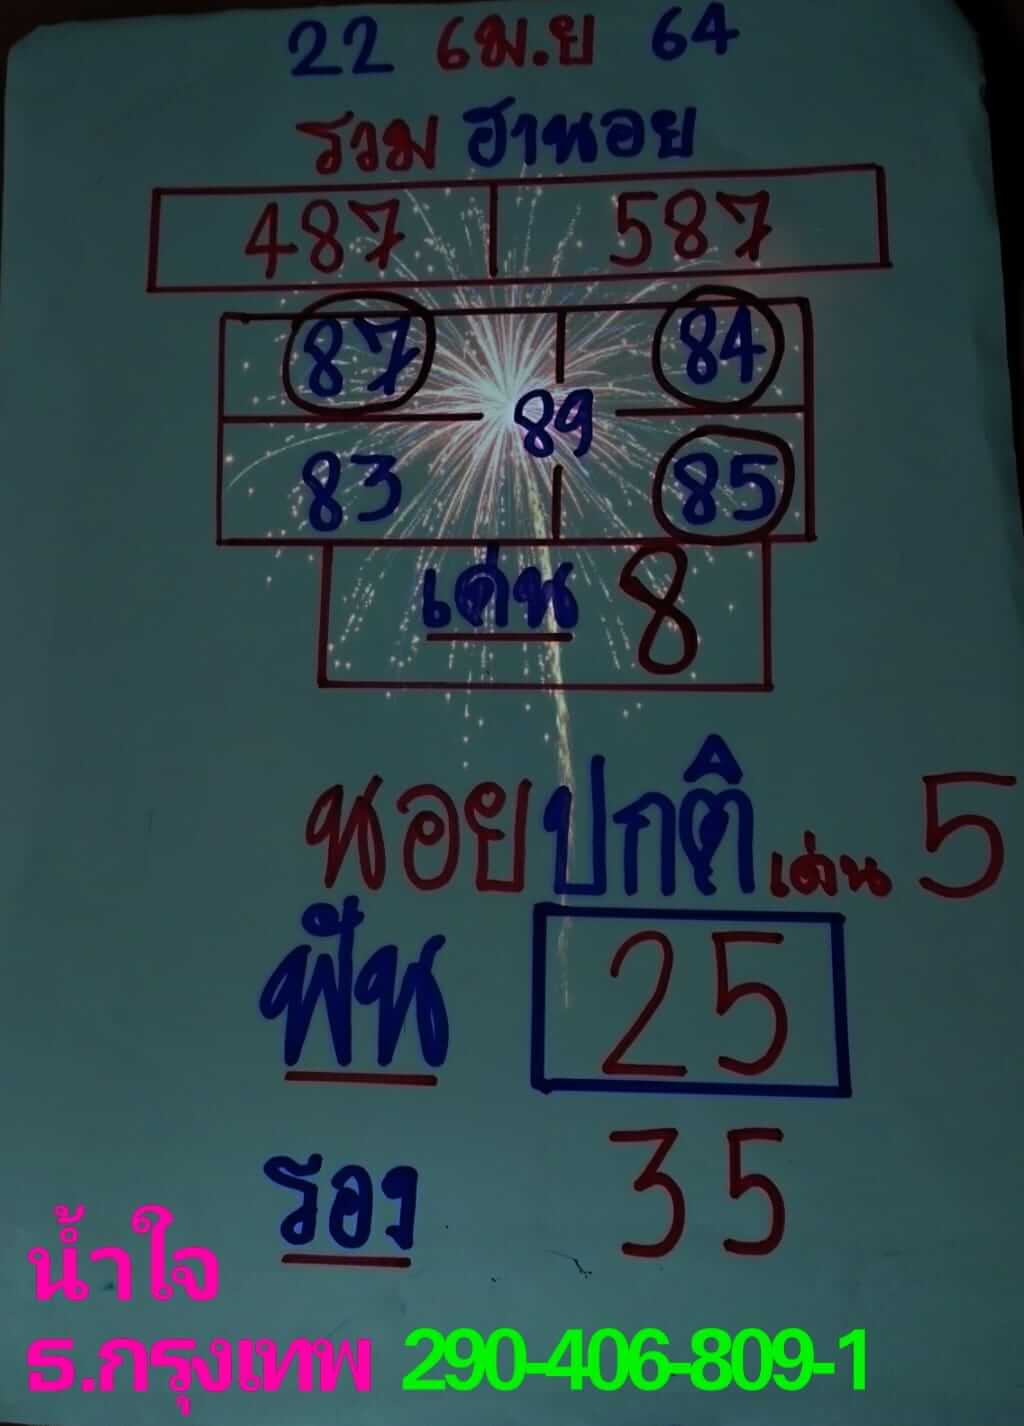 22 เม.ย 64
รวม ฮานอย
487 587
87 84
89
83 85
เด่น 8
นอยปกติ เด่น 5
ฟัน 25
รอง 35
น้ำใจ
ธ.กรุงเทพ 290-406-809-1